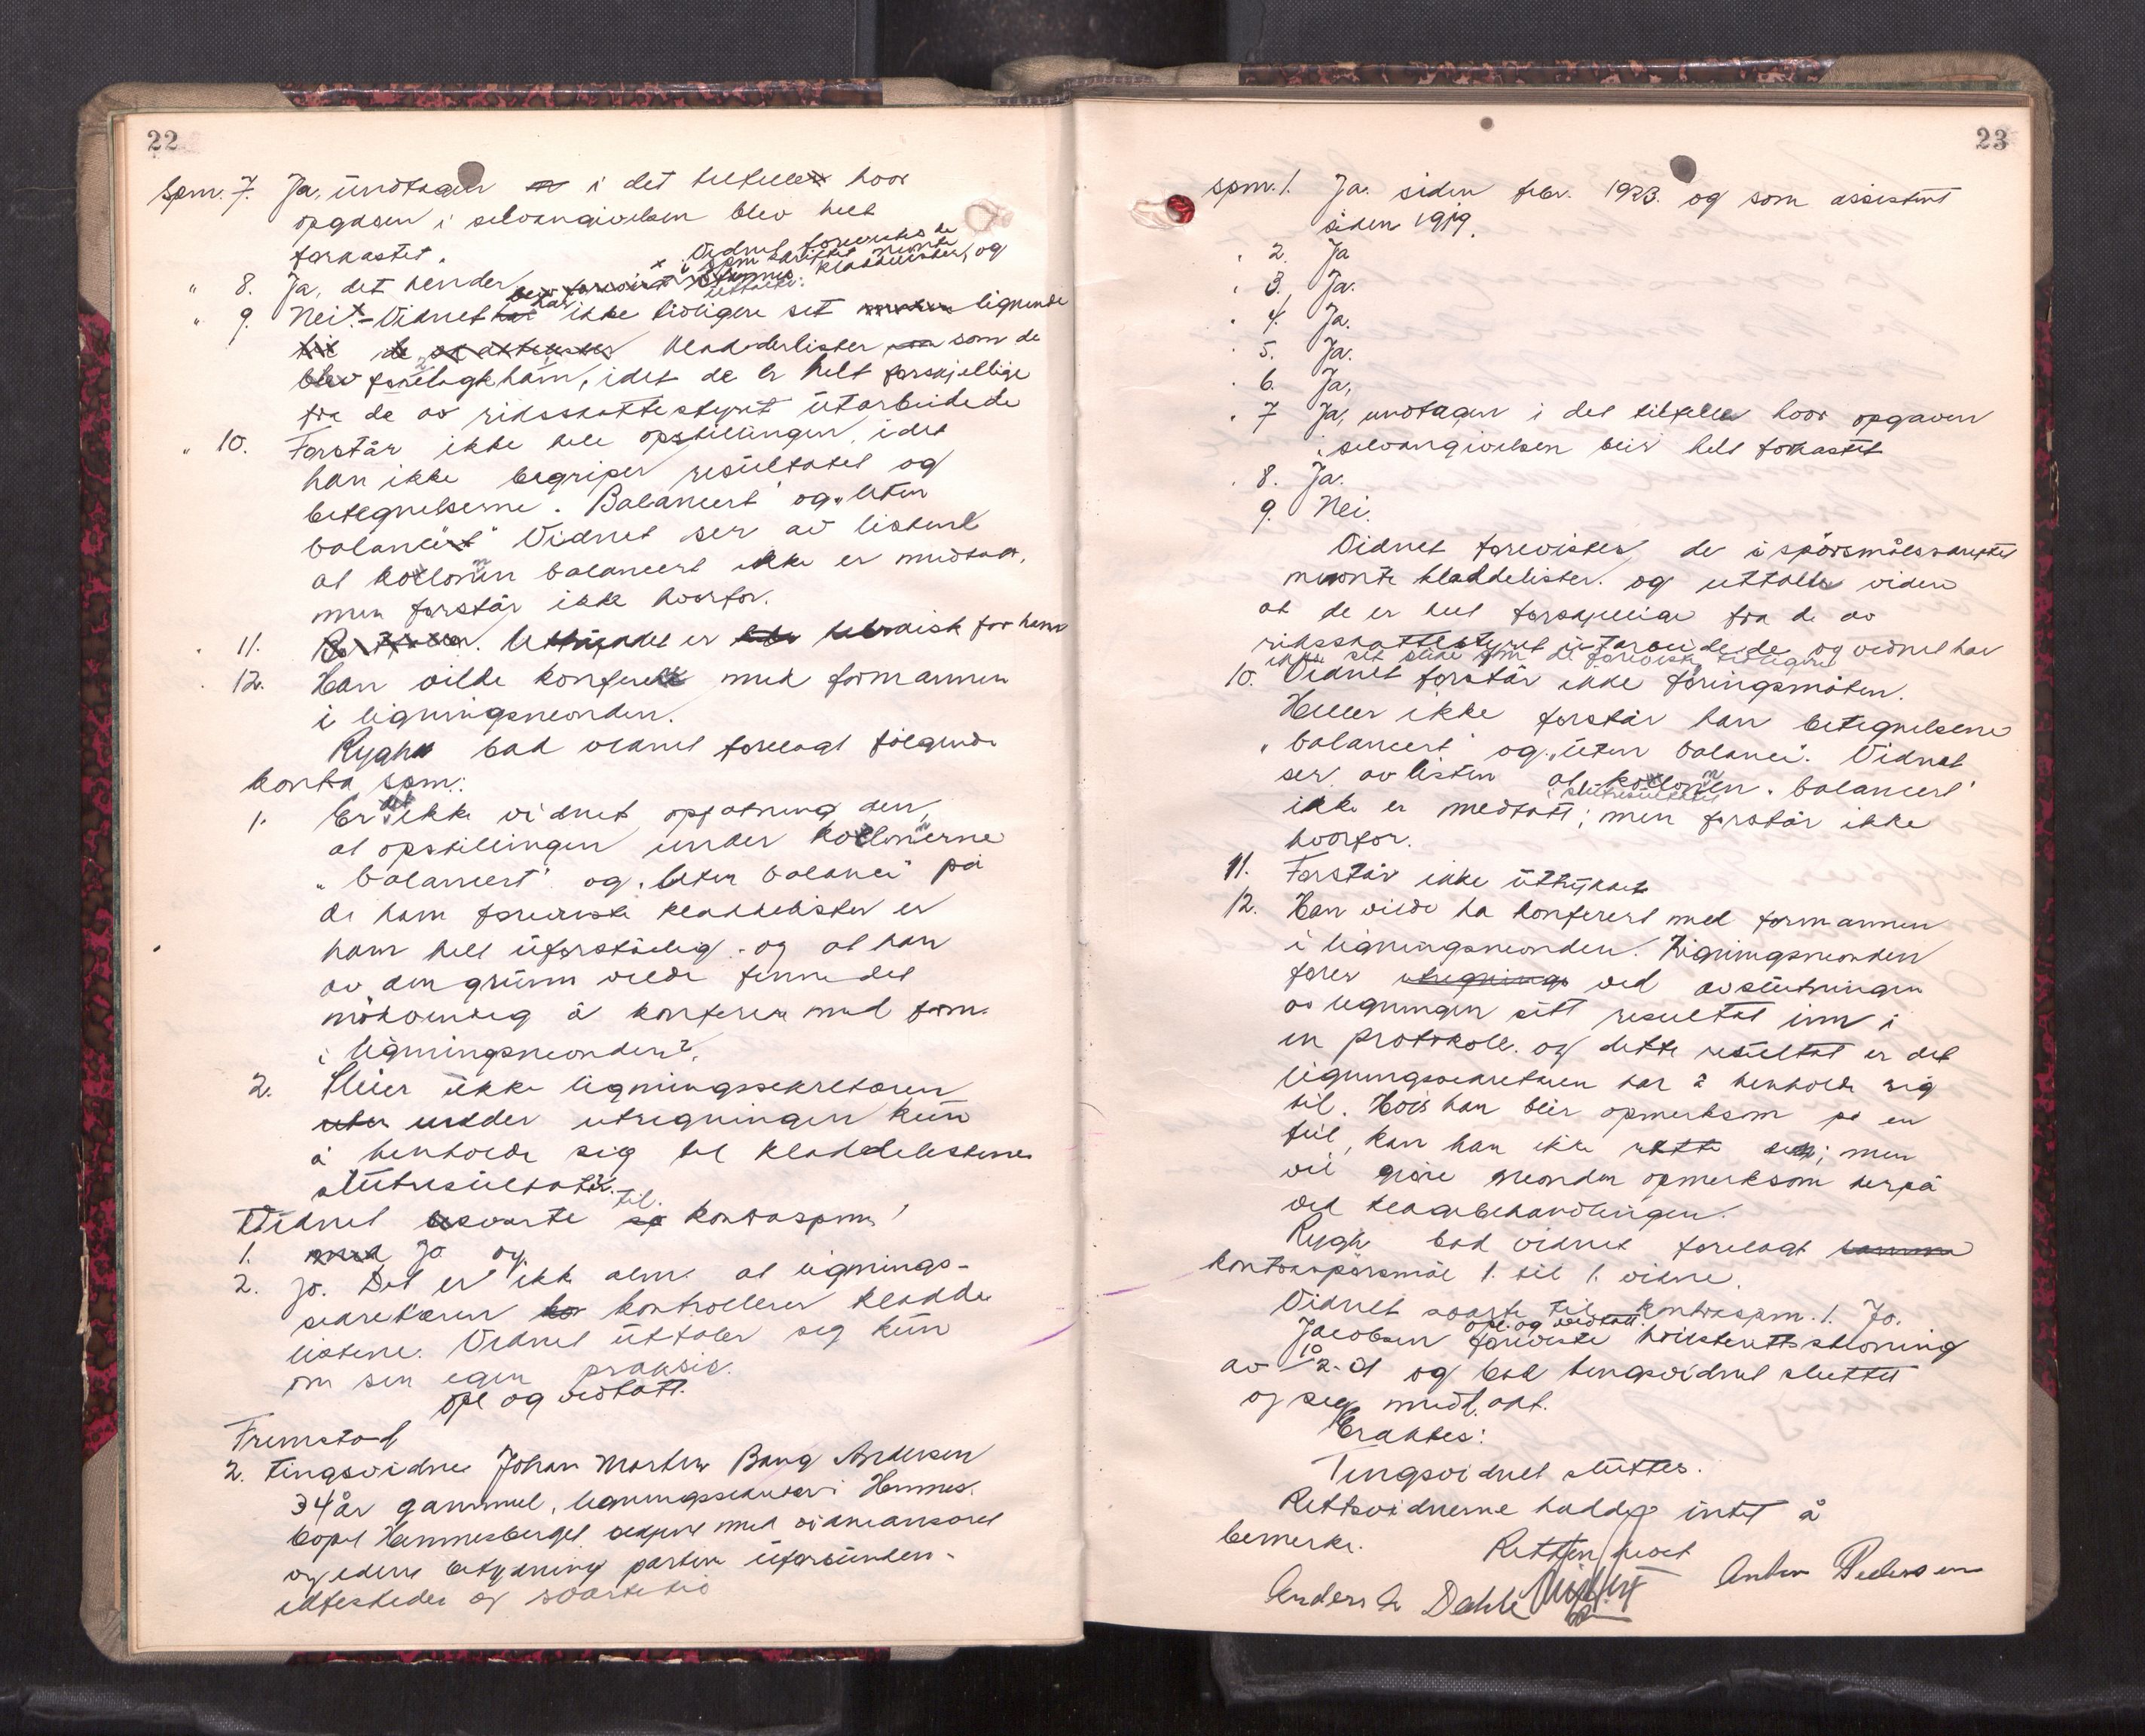 22
Spm. 7. Ja, undtagen i det tilfelle hvor
opgaven i selvangivelsen blev helt
forkastet.
" 8. Ja, det hender
× Vidnet forevistes de
i spm skriftet nevnte
kladdelister, og
uttalte:
" 9. Nei.× Vidnet har ikke tidligere set lignende
kladdelister som de
forelagt ham, idet de er helt forskjellige
fra de av riksskattestyret utarbeidede
" 10. Forstår ikke hele opstillingen, idet
han ikke begriper resultatet og
betegnelserne. Balancert og "uten
balance" Vidnet ser av listene
at kolonnen balancert ikke er medtatt,
men forstår ikke hvorfor.
" 11. Uttrykket er hebraisk for ham
" 12. Han vilde konferere med formannen
i ligningsnevnden.
Rygh bad vidnet forelagt følgende
kontra spm:
1. Er det ikke vidnets opfatning den,
at opstillingen under kolonnerne
"balancert" og "uten balance" på
de ham foreviste kladdelister er
ham helt uforståelig og at han
av den grunn vilde finne det
nødvendig å konferere med form.
i ligningsnevnden?
2. Pleier ikke ligningssekretæren
under utregningen kun
å henholde sig til kladdelistenes
slutresultater.
Vidnet svarte til kontraspm!
1. Jo og
2. Jo. Det er ikke alm. at lignings-
sekretæren kontrollerer kladde
listene. Vidnet uttaler seg kun
om sin egen praksis.
opl og vedtatt.
Fremstod
2. tingsvidne Johan Morten Bang Andersen
34 år gammel, ligningssekretær i Hemnes.
bopel Hemnesberget bekjent med vidneansvaret
og edens betydning partene uforbunden-
edfestedes og svarte til
23
spm. 1. Ja. siden febr. 1923. og som assistent
siden 1919.
" 2. Ja
" 3. Ja.
" 4. Ja.
" 5. Ja.
" 6. Ja,
" 7 Ja, undtagen i det tilfelle hvor opgaven
i selvangivelsen blir helt forkastet
" 8. Ja.
9. Nei.
Vidnet forevistes de i spørsmålsskriftet
nevnte kladdelister. og uttaller videre
at de er helt forskjellige fra de av
riksskattestyret utarbeidede og vidnet har
ikke set slike som de foreviste tidligere
10. Vidnet forstår ikke føringsmåten.
Heller ikke forstår han betegnelsene
"balancert" og "uten balance". Vidnet
ser av listen at kolonnen "balancert"
i slutresultatet
ikke er medtatt; men forstår ikke
hvorfor.
11. Forstår ikke uttrykket
12. Han vilde ha konferert med formannen
i ligningsnevnden. Ligningsnevnden
fører ved avslutningen
av ligningen sitt resultat inn i
en protokoll. og dette resultat er det
ligningssekretæren har å henholde sig
til. Hvis han blir opmerksom på en
feil, kan han ikke rette den; men
vil gjøre nevnden opmerksom herpå
ved klagebehandlingen.
Rygh bad vidnet forelagt
kontraspørsmål 1. til 1. vidne.
Vidnet svarte til kontraspm. 1. Jo.
opl. og vedtatt.
Jacobsen foreviste høiesterettsstevning
av og bad tingsvidnet sluttet
og seg meddelt akt.
Eraktes:
Tingsvidnet sluttes.
Rettsvidnerne hadde intet å
bemerke.
Retten hevet
Anders Dahle
Anton Pedersen